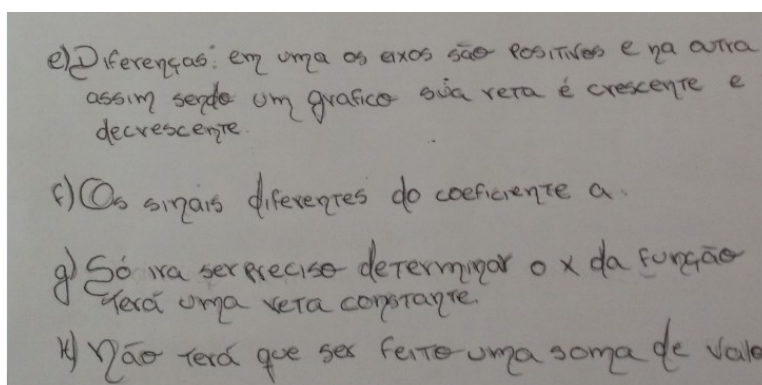 e) Diferenças: em uma os eixos são positivos e na outra
assim sendo um grafico sua reta é crescente e
decrescente.
f) Os sinais diferentes do coeficiente a.
g) Só ira ser preciso determinar o x da função
terá uma reta constante.
H) Não terá que ser feito uma soma de valo